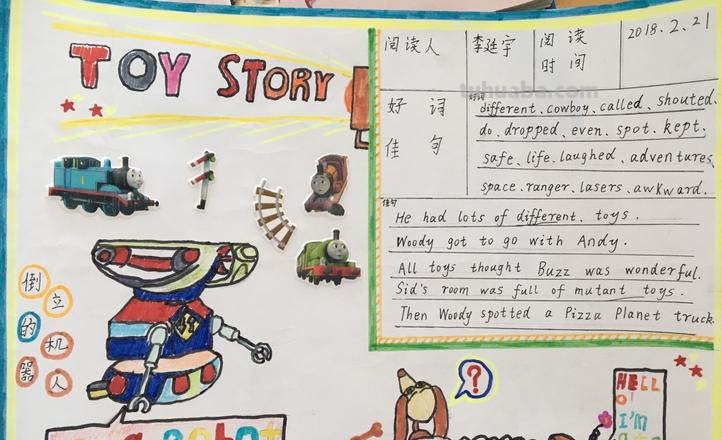 TOY STORY
阅读人 李廷宇 阅读时间 2018.2.21
tuhuaba.com
好词佳句
好词
different、cowboy、called、shouted、
do、dropped、even、spot、kept、
safe、life、laughed、adventures、
space、ranger、lasers、awkward.
佳句
He had lots of different toys.
Woody got to go with Andy.
All toys thought Buzz was wonderful.
Sid's room was full of mutant toys.
Then Woody spotted a Pizza Planet truck.
倒立的机器人
1
?
HELL
O!
I'M
a robot